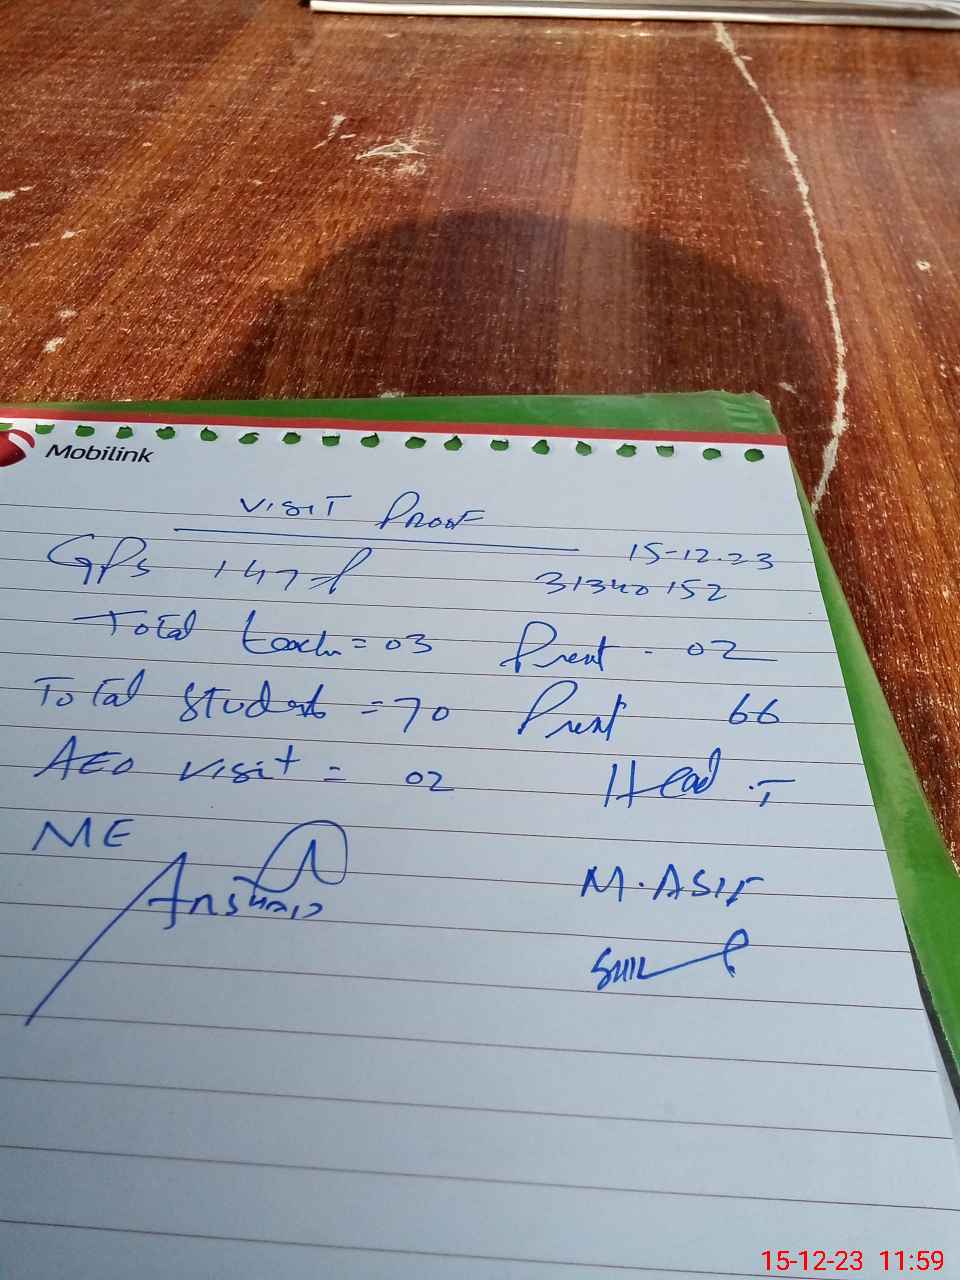 Mobilink
VISIT PROOF
15-12-23
GPS 147 P
31340152
Total teach = 03 Prent - 02
Total Student = 70 Prent 66
AEO visit = 02 Head .T
ME
M.ASIF
15-12-23 11:59